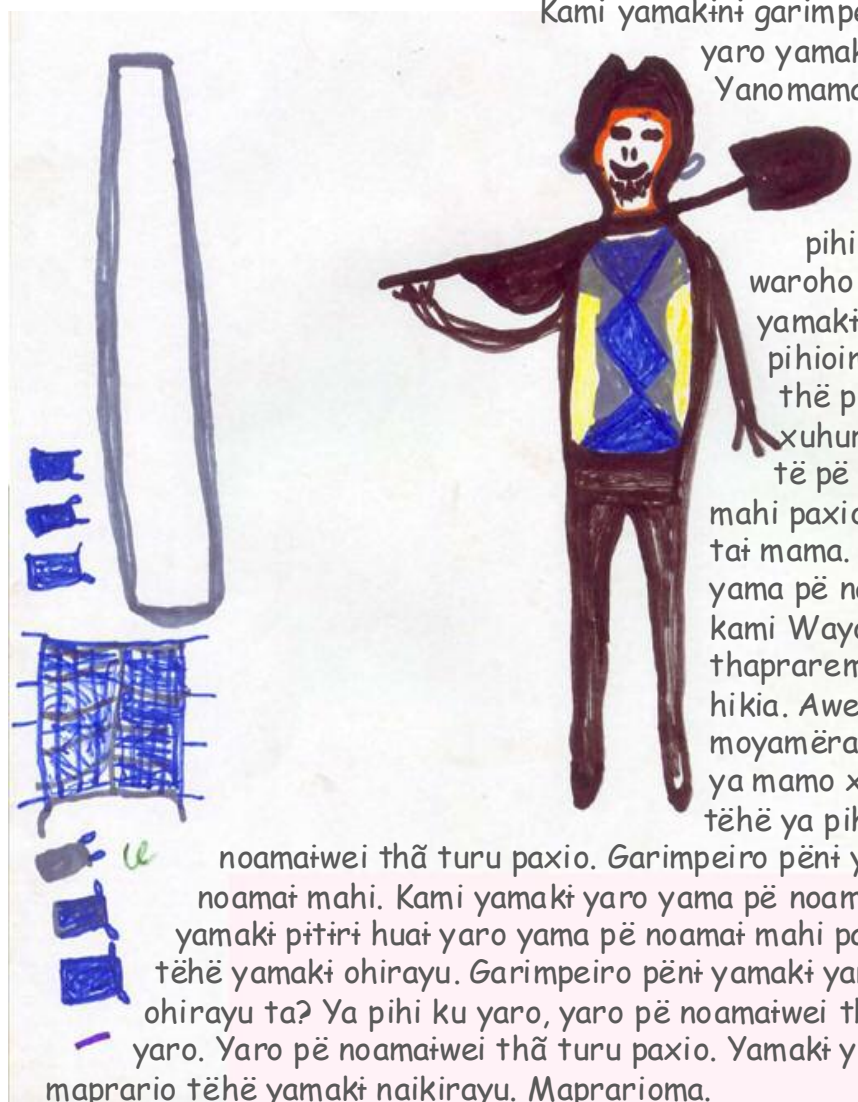 Kami yamakɨnɨ garimpe
yaro yamak
Yanomama
pihi
waroho
yamakɨ
pihioin
thë p
xuhur
të pë
mahi paxio
taɨ mama.
yama pë n
kami Waya
thaprarem
hikia. Awe
moyamëra
ya mamo x
tëhë ya pih
noamaɨwei thã turu paxio. Garimpeiro pënɨ y
noamaɨ mahi. Kami yamakɨ yaro yama pë noam
yamakɨ pɨtɨrɨ huaɨ yaro yama pë noamaɨ mahi pa
tëhë yamakɨ ohirayu. Garimpeiro pënɨ yamakɨ ya
ohirayu ta? Ya pihi ku yaro, yaro pë noamaɨwei t
yaro. Yaro pë noamaɨwei thã turu paxio. Yamakɨ y
maprario tëhë yamakɨ naikirayu. Maprarioma.